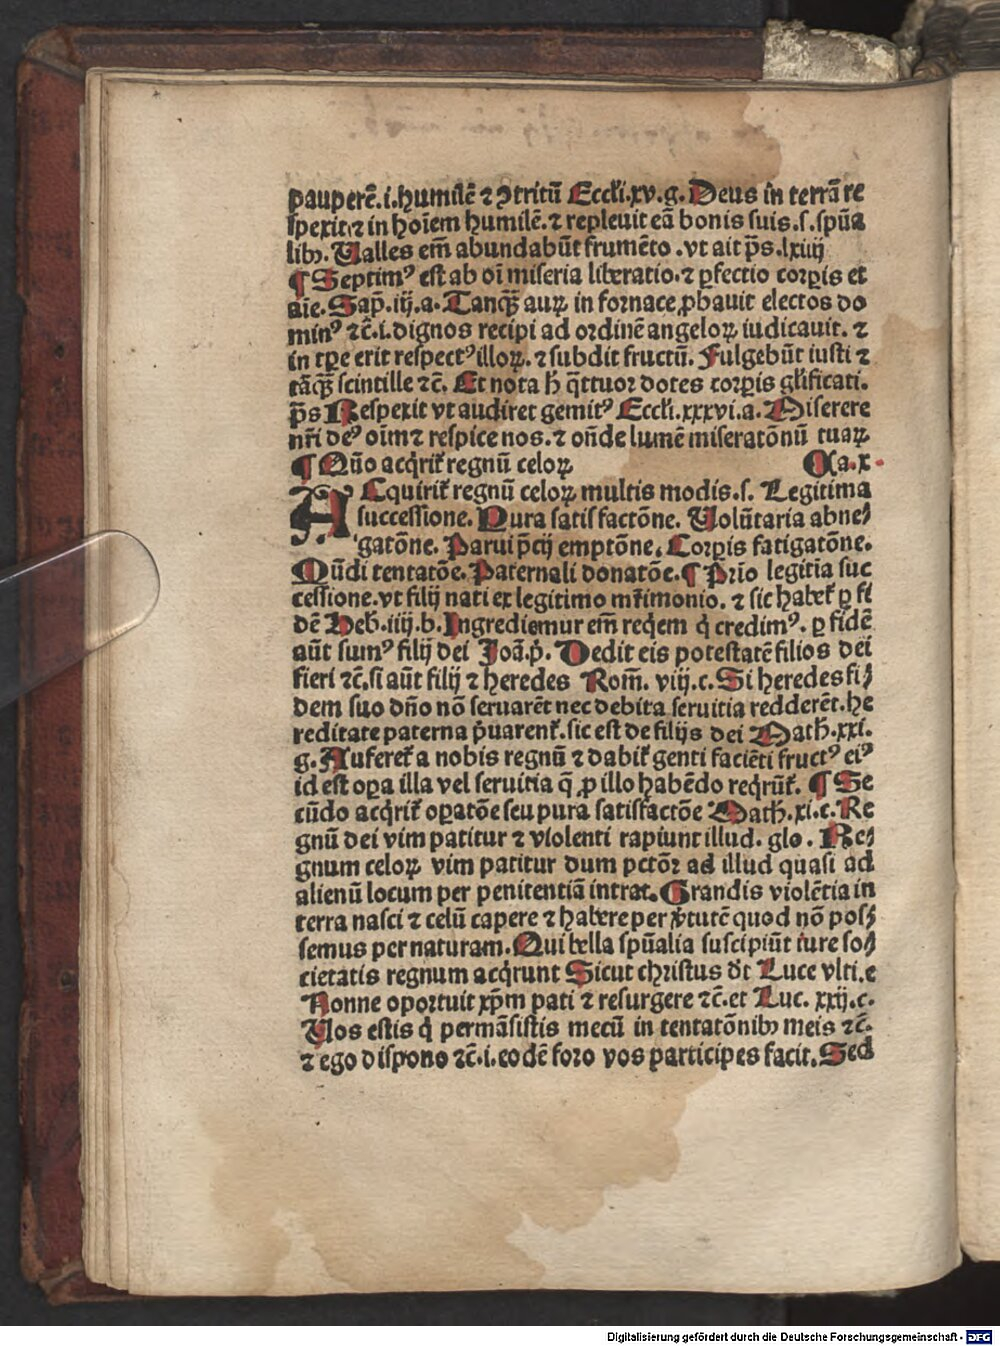 pauperē.i.humilē ⁊ ꝯtritū Eccli.xv.g. Deus in terrā re
spexit ⁊ in hoīem humilē.⁊ repleuit eā bonis suis.s.spūa
libꝫ. Ualles em̄ abundabūt frumēto .vt ait p̄s.lxiiij
¶ Septimꝰ est ab oī miseria liberatio.⁊ ꝑfectio corꝑis et
aīe. Sap̄. iij.a. Tanqȝ̄ auꝝ in fornace ꝓbauit electos do
minꝰ ⁊c̄.i.dignos recipi ad ordinē angeloꝝ iudicauit. ⁊
in tp̄e erit respectꝰ illoꝝ. ⁊ subdit fructū. Fulgebūt iusti ⁊
tāqȝ̄ scintille ⁊c̄. Et nota h̄ q̄ttuor dotes corꝑis gl̄ificati.
p̄s Respexit vt audiret gemitꝰ Eccli.xxxvi.a. Miserere
nr̄i deꝰ oīm ⁊ respice nos. ⁊ on̄de lumē miseratōnū tuaꝝ
¶ Quō acq̄rit᷑ regnū celoꝝ Ca.x.
Acquirit᷑ regnū celoꝝ multis modis.s. Legitima
successione. Pura satisfactōne. Uolūtaria abne⸗
gatōne. Parui p̄cij emptōne. Corꝑis fatigatōne.
Mūdi tentatōe. Paternali donatōe. ¶ Prīo legitīa suc
cessione.vt filij nati ex legitimo mr̄imonio. ⁊ sic habet᷑ ꝑ fi
dē Heb̄.iiij.b. Ingrediemur em̄ req̄em q̄ credimꝰ. ꝑ fidē
aūt sumꝰ filij dei Joā.p̄. Dedit eis potestatē filios dei
fieri ⁊c̄.si aūt filij ⁊ heredes Rom̄. viij.c. Si heredes fi⸗
dem suo dn̄o nō seruarēt nec debita seruitia redderēt.he
reditate paterna p̄uarent᷑.sic est de filijs dei Math̄.xxi.
g. Auferet᷑ a nobis regnū ⁊ dabit᷑ genti faciēti fructꝰ eiꝰ
id est oꝑa illa vel seruitia q̄ ꝓ illo habēdo req̄rūt᷑. ¶ Se
cūdo acq̄rit᷑ oꝑatōe seu pura satisfactōe Math̄.xi.c. Re
gnū dei vim patitur ⁊ violenti rapiunt illud. glo. Re⸗
gnum celoꝝ vim patitur dum pctōꝝ ad illud quasi ad
alienū locum per penitentiā intrat. Grandis violētia in
terra nasci ⁊ celū capere ⁊ habere per v̄tutē quod nō pos⸗
semus per naturam. Qui bella spūalia suscipiūt iure so⸗
cietatis regnum acq̄runt Sicut christus dt̄ Luce vlti.e
Nonne oportuit xp̄m pati ⁊ resurgere ⁊c̄.et Luc. xxij.c.
Uos estis q̄ permāsistis mecū in tentatōnibꝫ meis ⁊c̄.
⁊ ego dispono ⁊c̄.i.eodē foro vos participes facit. Sed
Digitalisierung gefördert durch die Deutsche Forschungsgemeinschaft - DFG